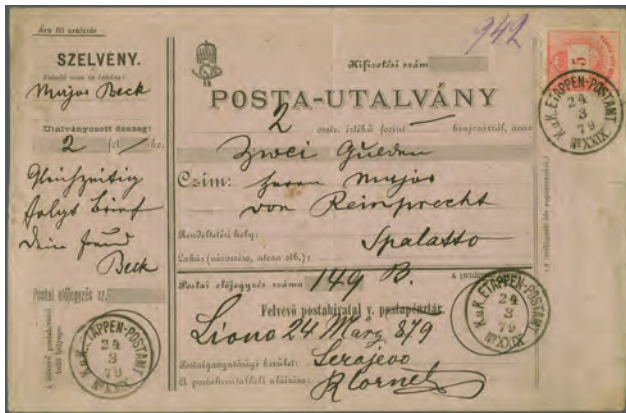 Ára fél krajczár
SZELVÉNY.
Major Beck
Utalványozott összeg:
2 frt — kr.
Gleichzeitig
folgt Brief
Dein Freund
Beck
Postai előjegyzés sz.
K.u.K. ETAPPEN-POSTAMT
24
3
79
No XXIX
942
Kifizetési szám
POSTA-UTALVÁNY
2 osztr. értékű forint — krajczárról, azaz
Zwei Gulden
Czím: Herrn Major
von Reinprecht
Rendeltetési hely: Spalatto
Lakás (városrész, utcza stb.):
Postai előjegyzés száma 149 B.
Felvevő postahivatal v. postapénztár
Liono 24 März 879
Postaigazgatósági kerület: Serajevo
A postahivatalbeli aláírása:
K.u.K. ETAPPEN-POSTAMT
24
3
79
No XXIX
5
K.u.K. ETAPPEN-POSTAMT
24
3
79
No XXIX